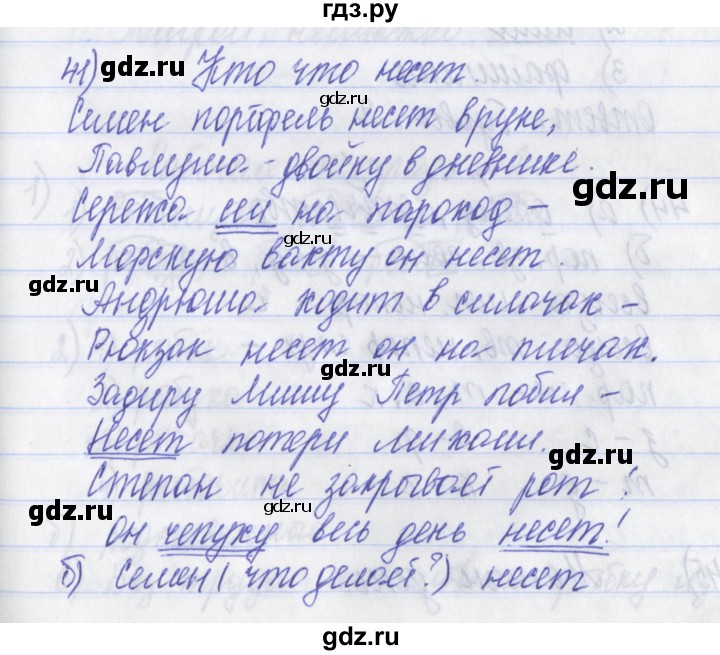 гдз.ру
41) Кто что несет.
gdz.ru
gdz.ru
Семен портфель несет в руке,
Павлуша - двойку в дневнике.
gdz.ru
Сережа сел на пароход -
gdz.ru
Морскую вахту он несет.
gdz.ru
Андрюша ходит в силачах -
Рюкзак несет он на плечах.
Задиру Мишу Петр побил -
Несет потери Михаил.
gdz.ru
gdz.ru
Степан не закрывает рот:
он чепуху весь день несет!
б) Семен (что делает?) несет
gdz.ru